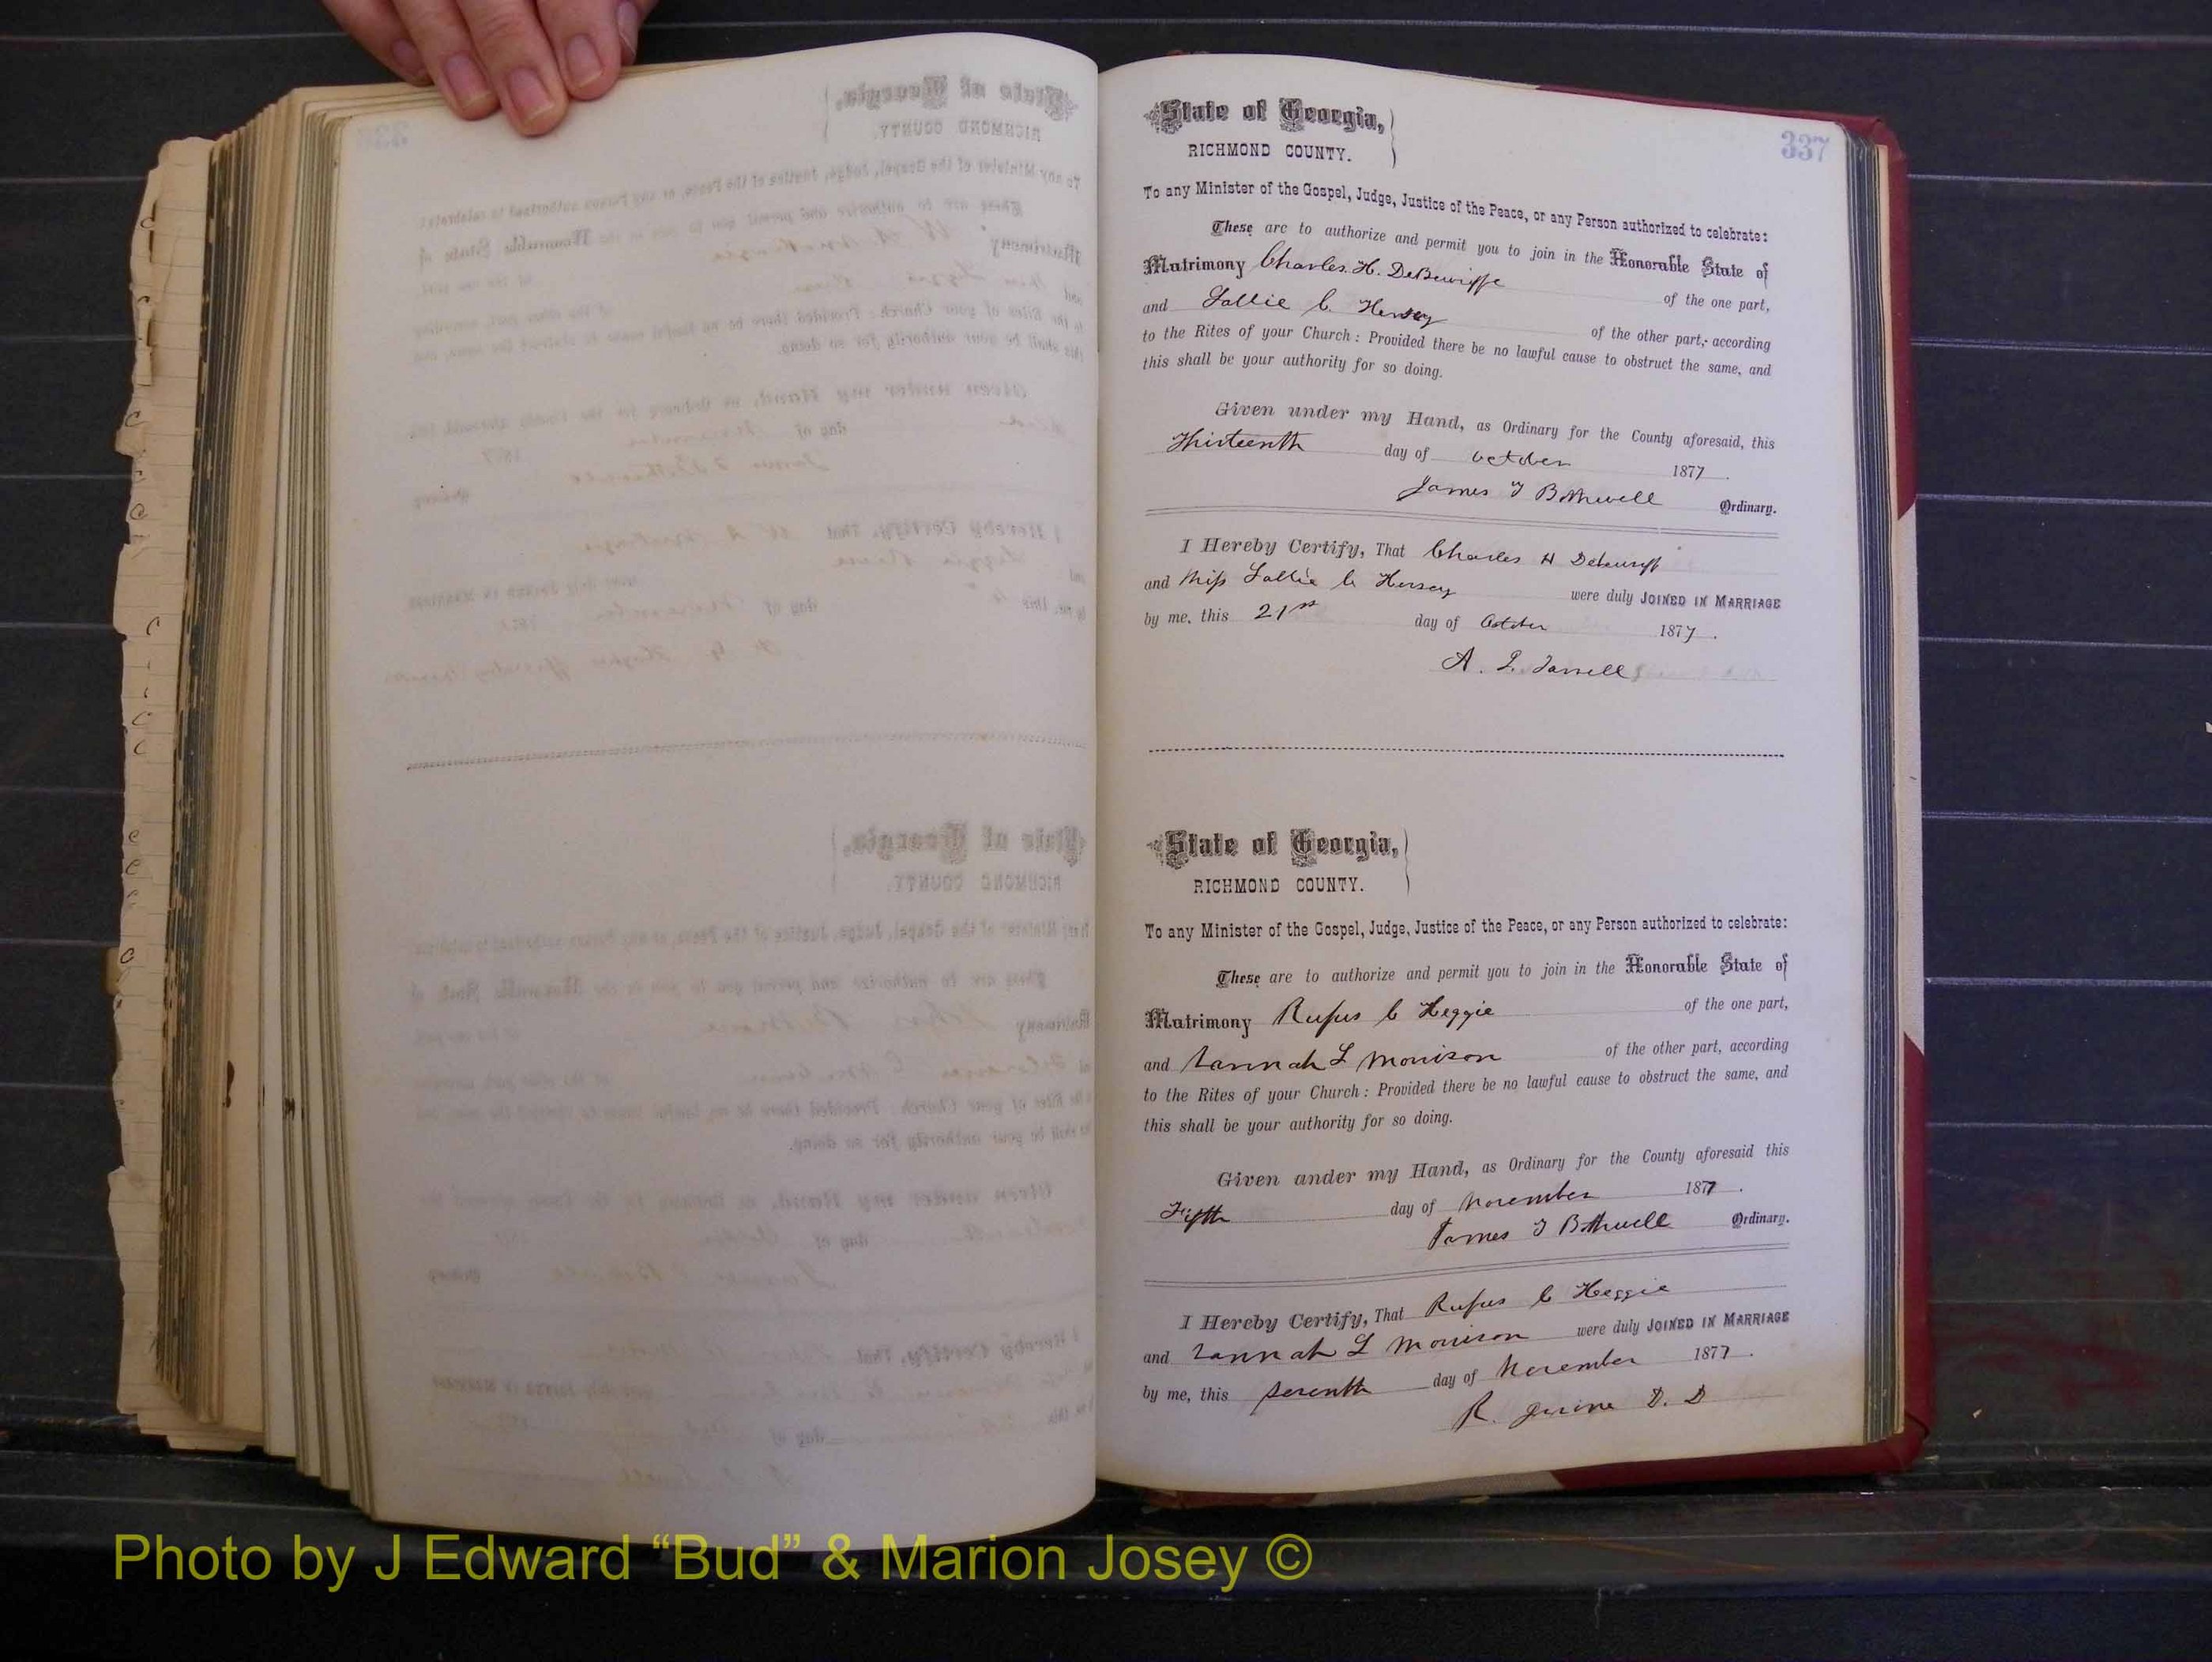 337
State of Georgia,
RICHMOND COUNTY.
To any Minister of the Gospel, Judge, Justice of the Peace, or any Person authorized to celebrate:
These are to authorize and permit you to join in the Honorable State of
Matrimony Charles. H. of the one part,
and Sallie C. Hersey of the other part, according
to the Rites of your Church: Provided there be no lawful cause to obstruct the same, and
this shall be your authority for so doing.
Given under my Hand, as Ordinary for the County aforesaid, this
Thirteenth day of October 1877.
James T Bothwell Ordinary.
I Hereby Certify, That Charles H
and Miss Sallie C Hersey were duly JOINED IN MARRIAGE
by me, this 21st day of October 1877.
A. J. Jarrell
State of Georgia,
RICHMOND COUNTY.
To any Minister of the Gospel, Judge, Justice of the Peace, or any Person authorized to celebrate:
These are to authorize and permit you to join in the Honorable State of
Matrimony Rufus C Heggie of the one part,
and Hannah L Morrison of the other part, according
to the Rites of your Church: Provided there be no lawful cause to obstruct the same, and
this shall be your authority for so doing.
Given under my Hand, as Ordinary for the County aforesaid this
Fifth day of November 1877.
James T Bothwell Ordinary.
I Hereby Certify, That Rufus C Heggie
and Hannah L Morrison were duly JOINED IN MARRIAGE
by me, this seventh day of November 1877.
R. Irvine D. D
Photo by J Edward “Bud” & Marion Josey ©